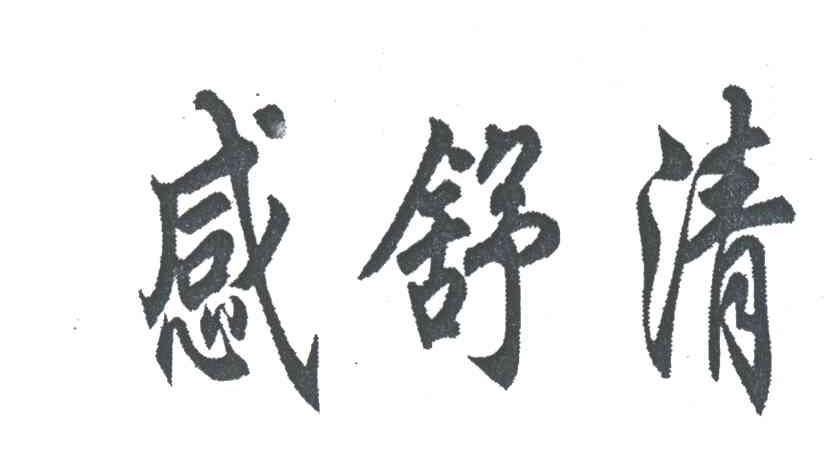 感舒清